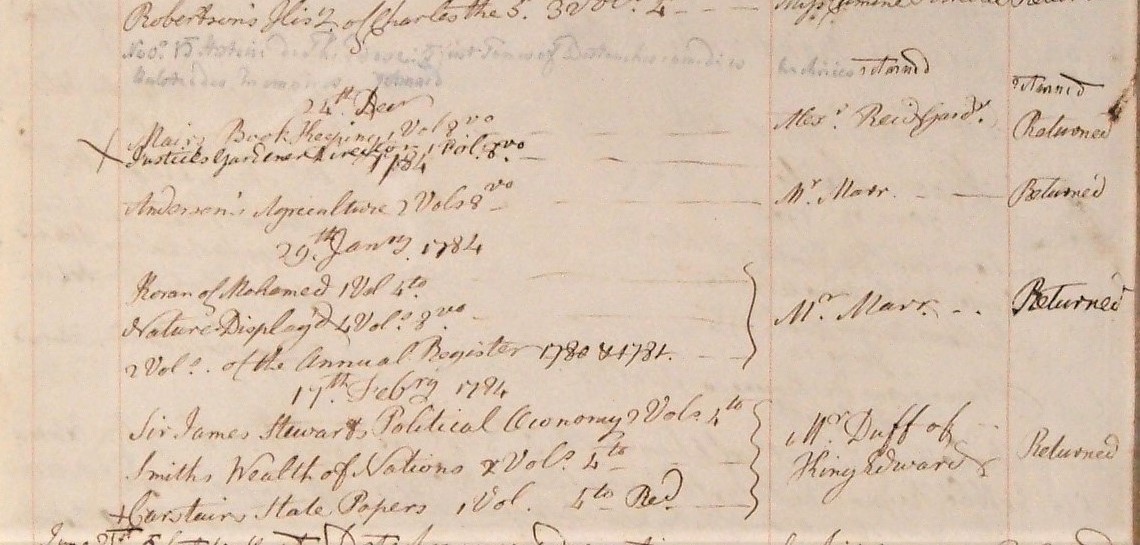 Robertson's Hist. of Charles the 5. 3 Vol.s 4
returned
24th Decr
returned
Mairs Book Keeping 1 Vol 8vo Alexr Reid Gardr. Returned
Justices Gardeners Director 1 Vol. 8vo
1784
Anderson's Agriculture 2 Vols 8vo Mr Marr. Returned
29th Janry. 1784
Koran of Mohamed 1 Vol 4to
Nature Display'd 4 Vols 8vo Mr Marr Returned
2 Vols. of the Annual Register 1780 & 1781.
17th Febry 1784
Sir James Stewarts Political Oeconomy 2 Vols. 4to
Smiths Wealth of Nations 2 Vols. 4to Mr. Duff of King Edward Returned
+ Carstairs State Papers 1 Vol. 4to Red